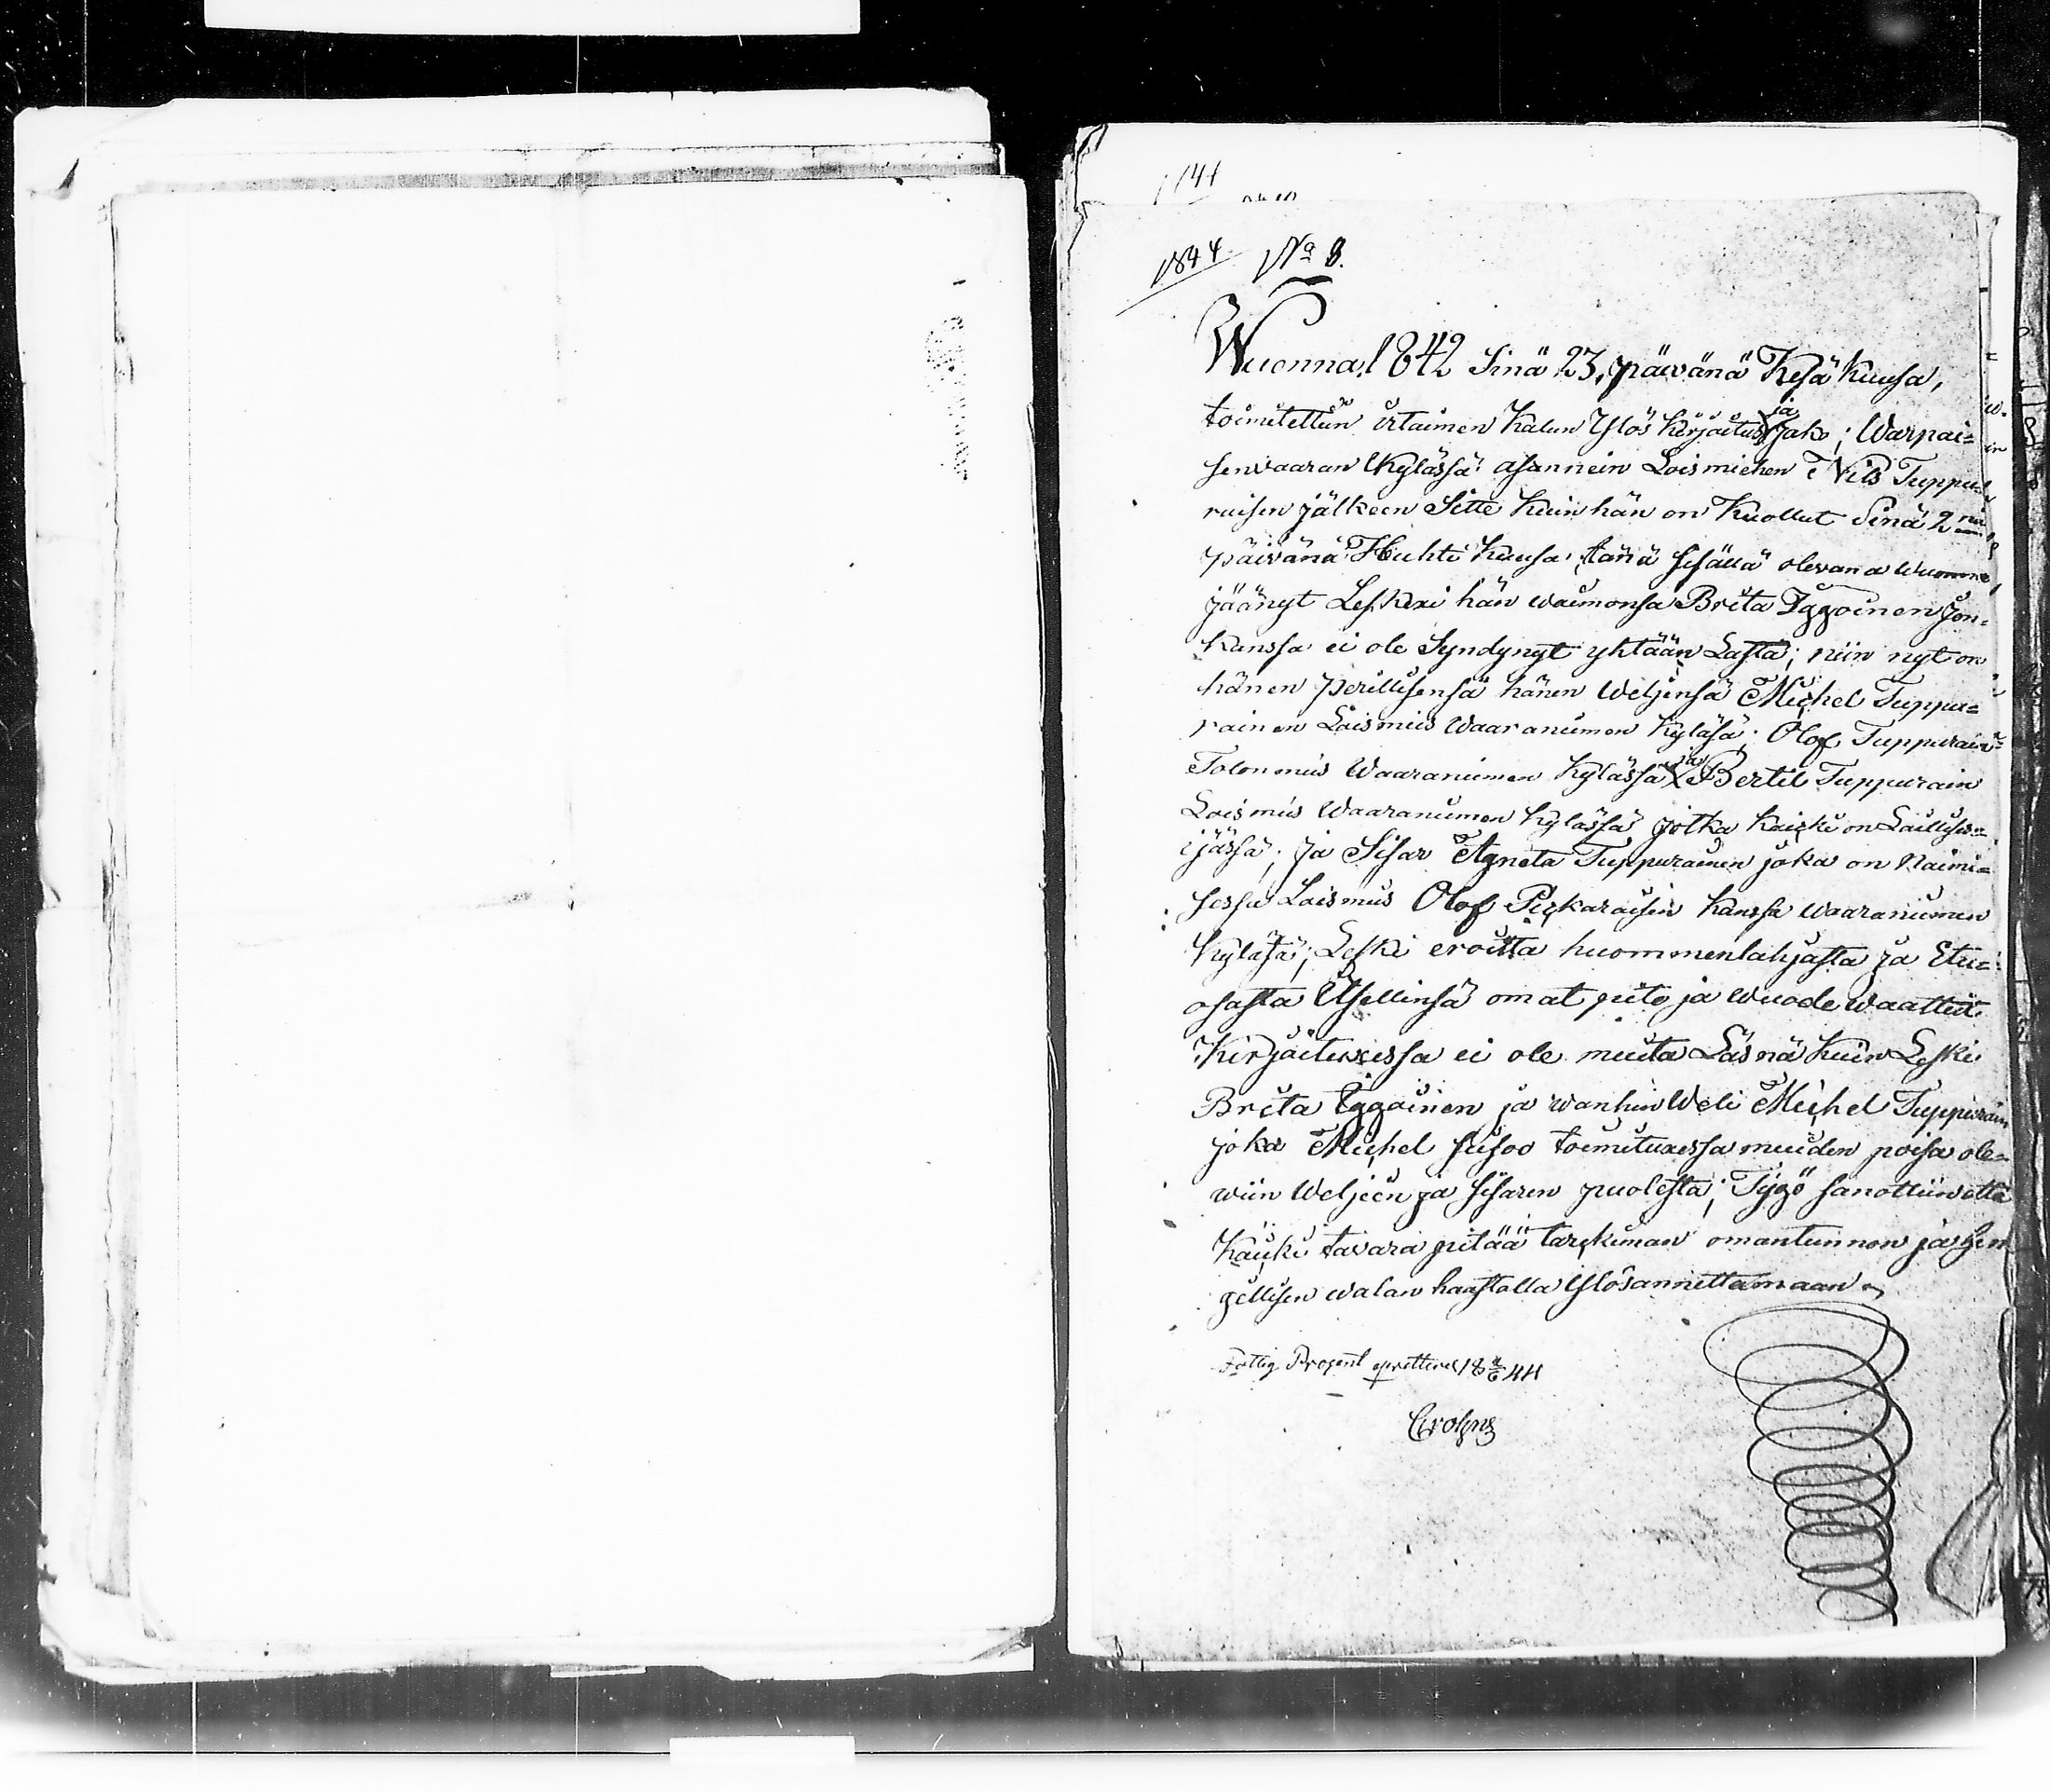 1844 No 8.
Wuonna 1842 Sinä 23, päivänä Kesä Kuusa,
toimitettin irtaimen Kalun Ylös Kirjoitus ja jako; Warpai=
senvaaran Kylässä asunnein Loismiehen Nils Tuppu=
raisen jälkeen Sitte Kuin hän on Kuollut Sinä 2na
päivänä Huhti Kuusa, tänä sisällä olevana Wuonna,
jäänyt Leskexi hän waimonsa Brita Iggoinen Jon=
kanssa ei ole Syndynyt yhtään Lasta; niin nyt on
hänen perillisensä hänen Weljensä Michel Tuppu=
rainen Loismies Waaraniimen Kyläsä; Olof Tuppurain
Tolonmies Waaraniemen Kylässä ja Bertil Tuppurain
Loismies Waaraniimen Kylässä jotka Kaicki on Laillises=
ijässä; Ja Sisar Agneta Tuppurainen joka on Naimi=
sessa Loismies Olof Pickaraisen Kanssa waaraniimen
Kyläsä; Leski eroitta huommenlahjasta ja Etu=
osasta Itsellinsä omat pito ja Wuode Waattet.
Kirjoituxessa ei ole muita Läsnä Kuin Leski
Brita Iggoinen ja wanhin Weli Michel Tuppurain
joka Michel seisoo toimituxessa muiden poisa ole=
wiin Weljein ja sisaren puolesta; Tygö sanottiin että
Kaicki tavara pitää tarckiman omantunnon ja hen
gellisen walan haastolla Ylösannettamaan
Fattig Procent uprettened 18 4/6 44